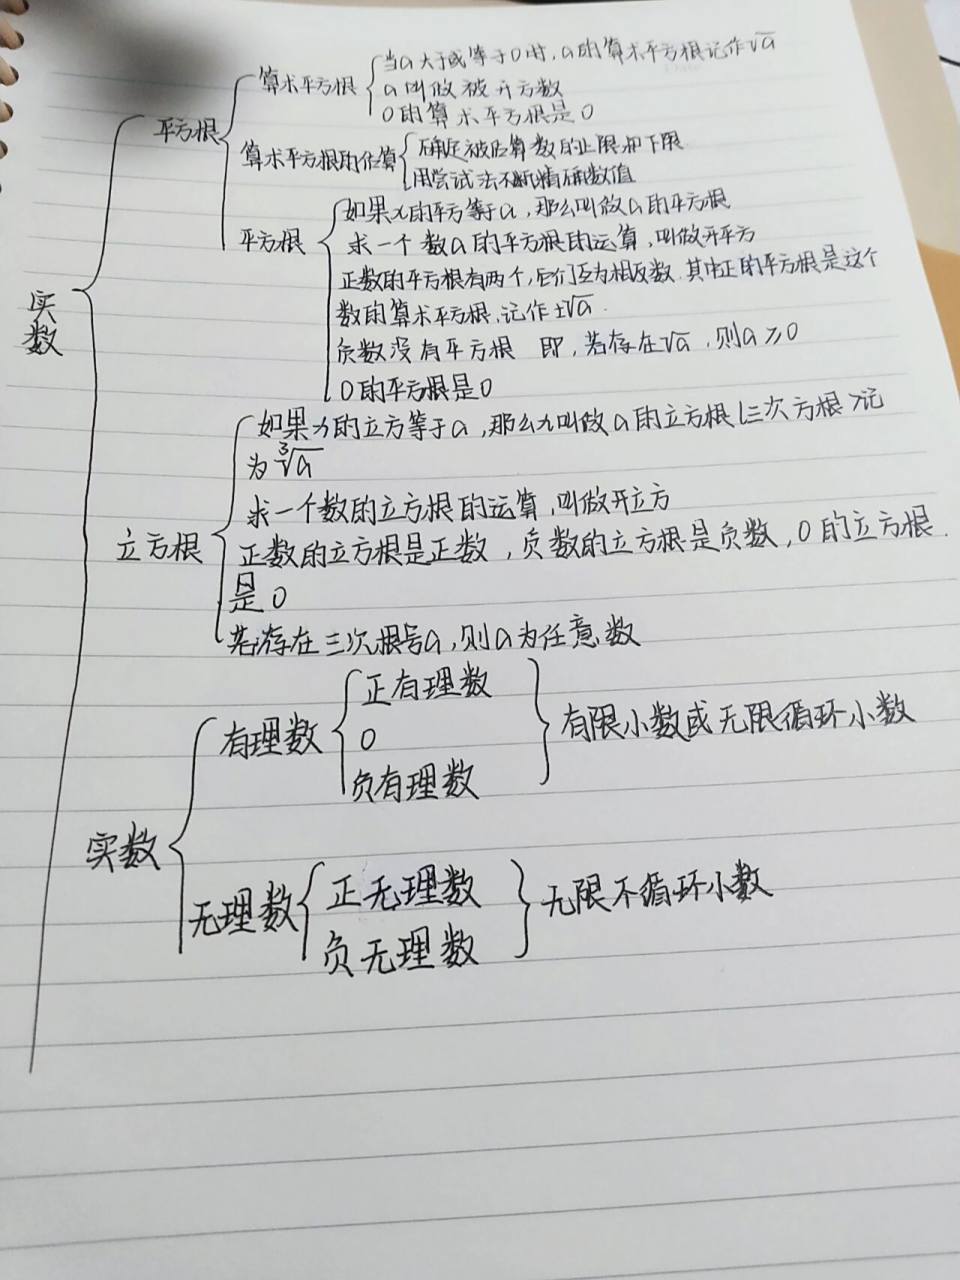 当a大于或等于0时，a的算术平方根记作√a
算术平方根
a叫做被开方数
0的算术平方根是0
平方根
算术平方根的估算
确定被估算数的上限和下限
用尝试法不断精确数值
如果x的平方等于a，那么叫做a的平方根
平方根
求一个数a的平方根的运算，叫做开平方
正数的平方根有两个，它们互为相反数，其中正的平方根是这个
数的算术平方根，记作±√a.
负数没有平方根 即，若存在√a，则a≥0
0的平方根是0
实数
如果x的立方等于a，那么x叫做a的立方根(三次方根)记
为∛a
求一个数的立方根的运算，叫做开立方
立方根
正数的立方根是正数，负数的立方根是负数，0的立方根
是0
若存在三次根号a，则a为任意数
正有理数
有理数
0
有限小数或无限循环小数
负有理数
实数
正无理数
无理数
无限不循环小数
负无理数